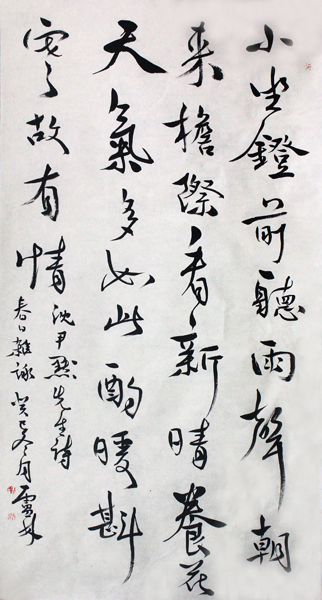 小坐鐙前聽雨聲朝
来檐際看新晴養花
天氣多如此酌暖斟
寒故有情
沈尹默先生詩
春日雜詠癸巳冬月